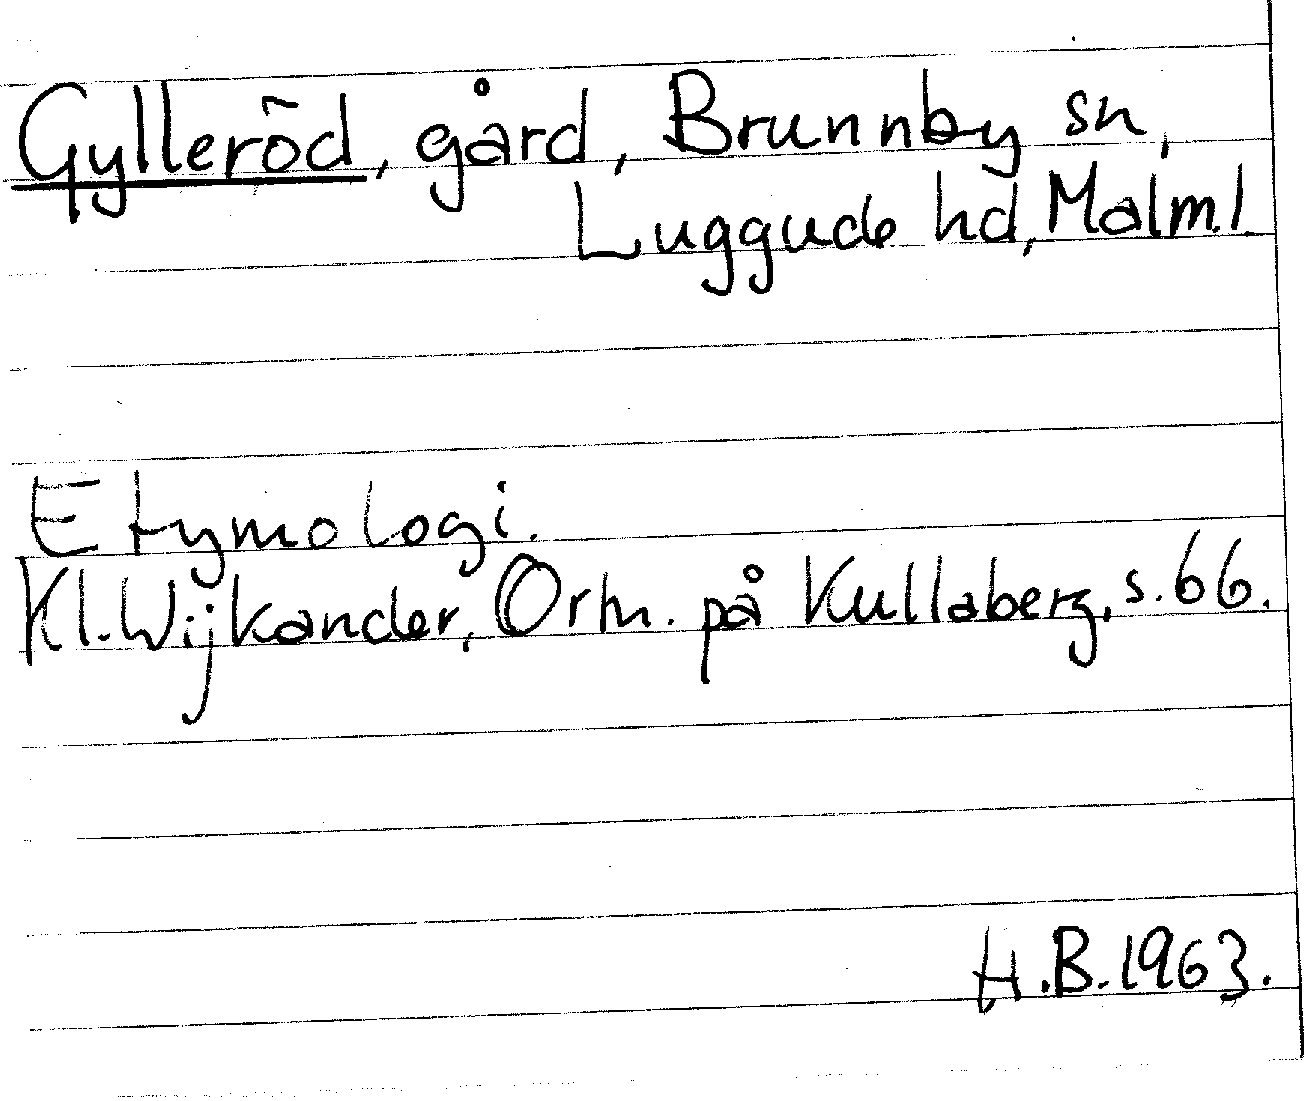 Gylleröd, gård, Brunnby sn,
Luggude hd, Malm.l.
Etymologi.
Kl. Wijkander, Ortn. på Kullaberg, s. 66.
H.B. 1963.